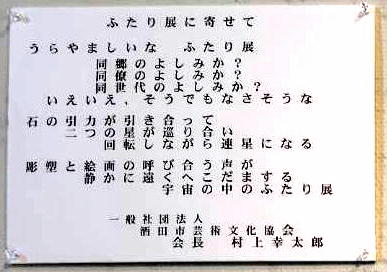 ふたり展に寄せて
うらやましいな　ふたり展
同郷のよしみか？
同僚のよしみか？
同世代のよしみか？
いえいえ、そうでもなさそうな
石の引力が引き合って
二つの星が巡り合い
回転しながら連星になる
彫塑と絵画の呼び合う声が
静かに遠くへこだまする
宇宙の中のふたり展
一般社団法人
酒田市芸術文化協会
会長　村上幸太郎